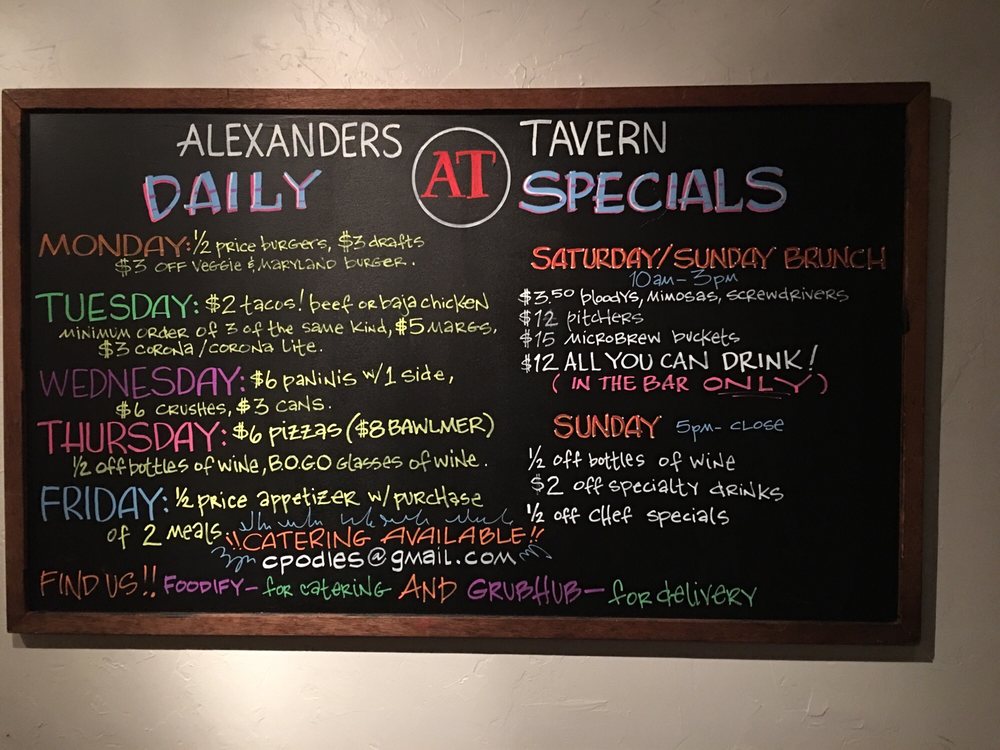 ALEXANDERS AT TAVERN
DAILY SPECIALS
MONDAY: 1/2 price burgers, $3 drafts
$3 OFF VEGGIE & MARYLAND BURGER.
TUESDAY: $2 tacos! beef or baja chicken
MINIMUM ORDER OF 3 OF THE SAME KIND, $5 MARGS,
$3 CORONA/CORONA LITE.
WEDNESDAY: $6 PANINIS W/1 SIDE,
$6 CRUSHES, $3 CANS.
THURSDAY: $6 PIZZAS ($8 BAWLMER)
1/2 off bottles of wine, B.O.G.O Glasses of wine.
FRIDAY: 1/2 price appetizer w/purchase
of 2 meals
!!CATERING AVAILABLE!!
cpodles@gmail.com
SATURDAY/SUNDAY BRUNCH
10am-3pm
$3.50 bloodys, mimosas, screwdrivers
$12 pitchers
$15 MICROBREW buckets
$12 ALL YOU CAN DRINK!
(IN THE BAR ONLY)
SUNDAY 5pm-CLOSE
1/2 off bottles of wine
$2 off specialty drinks
1/2 off chef specials
FIND US!! FOODIFY- for catering AND GRUBHUB- for delivery